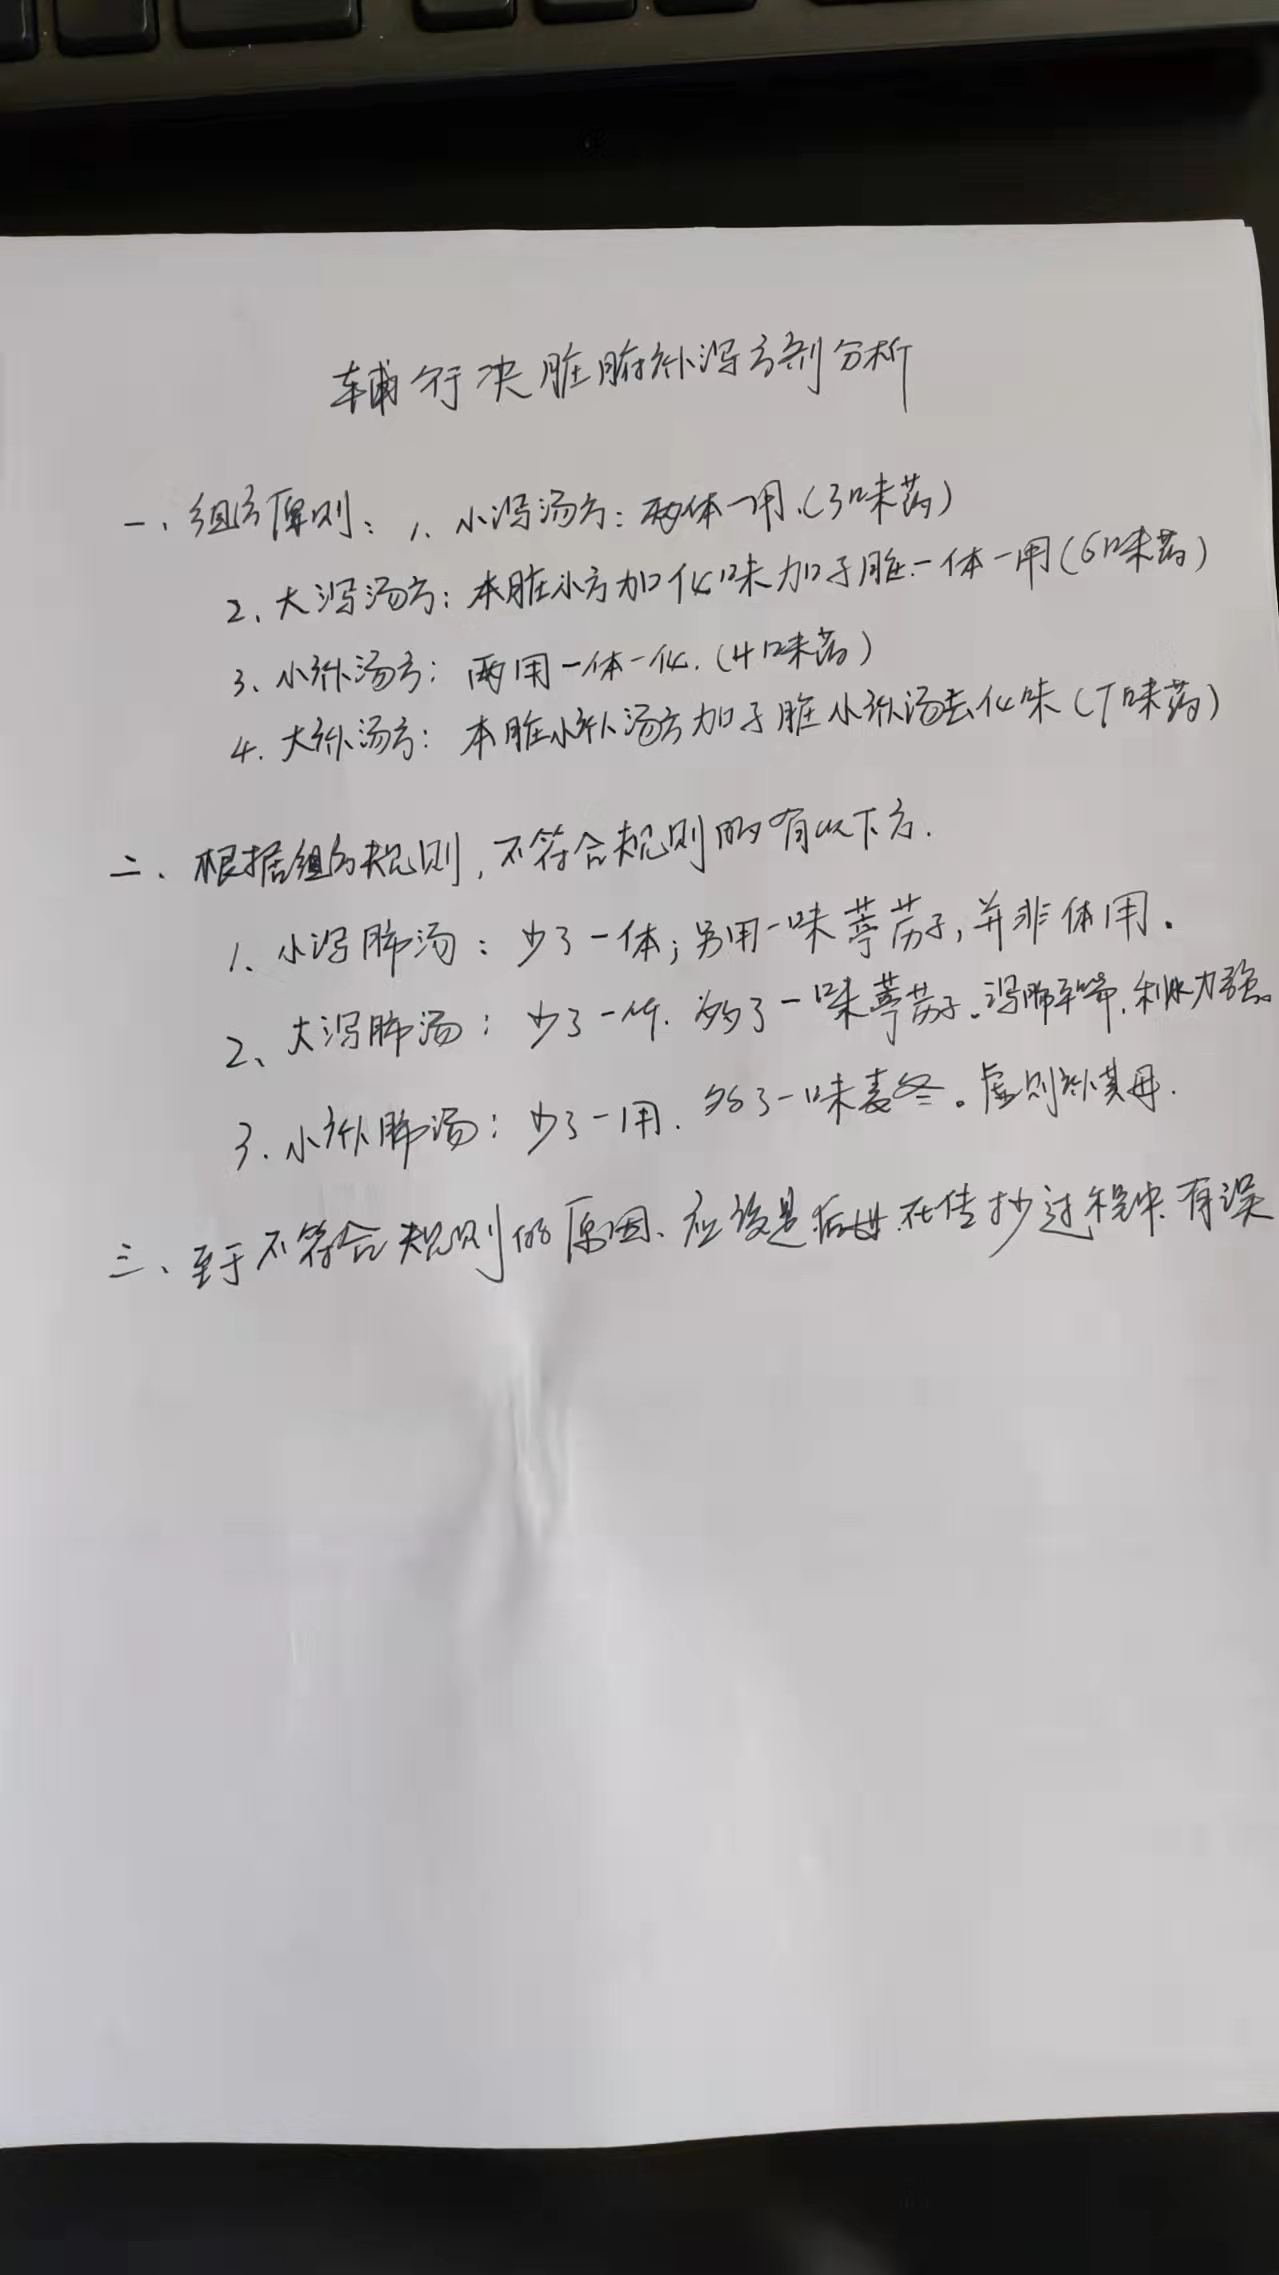 辅行决脏腑补泻方剂分析
一、组方原则：1、小泻汤方：两体一用.（3味药）
2、大泻汤方：本脏小方加化味加子脏一体一用（6味药）
3、小补汤方：两用一体一化.（4味药）
4、大补汤方：本脏小补汤方加子脏小补汤去化味（7味药）
二、根据组方规则，不符合规则的有以下方.
1、小泻肺汤：少了一体；另用一味葶苈子，并非体用。
2、大泻肺汤：少了一体.多了一味葶苈子。泻肺平喘，利水力强。
3、小补肺汤：少了一用.多了一味麦冬。虚则补其母.
三、至于不符合规则的原因、应该是后世在传抄过程中有误